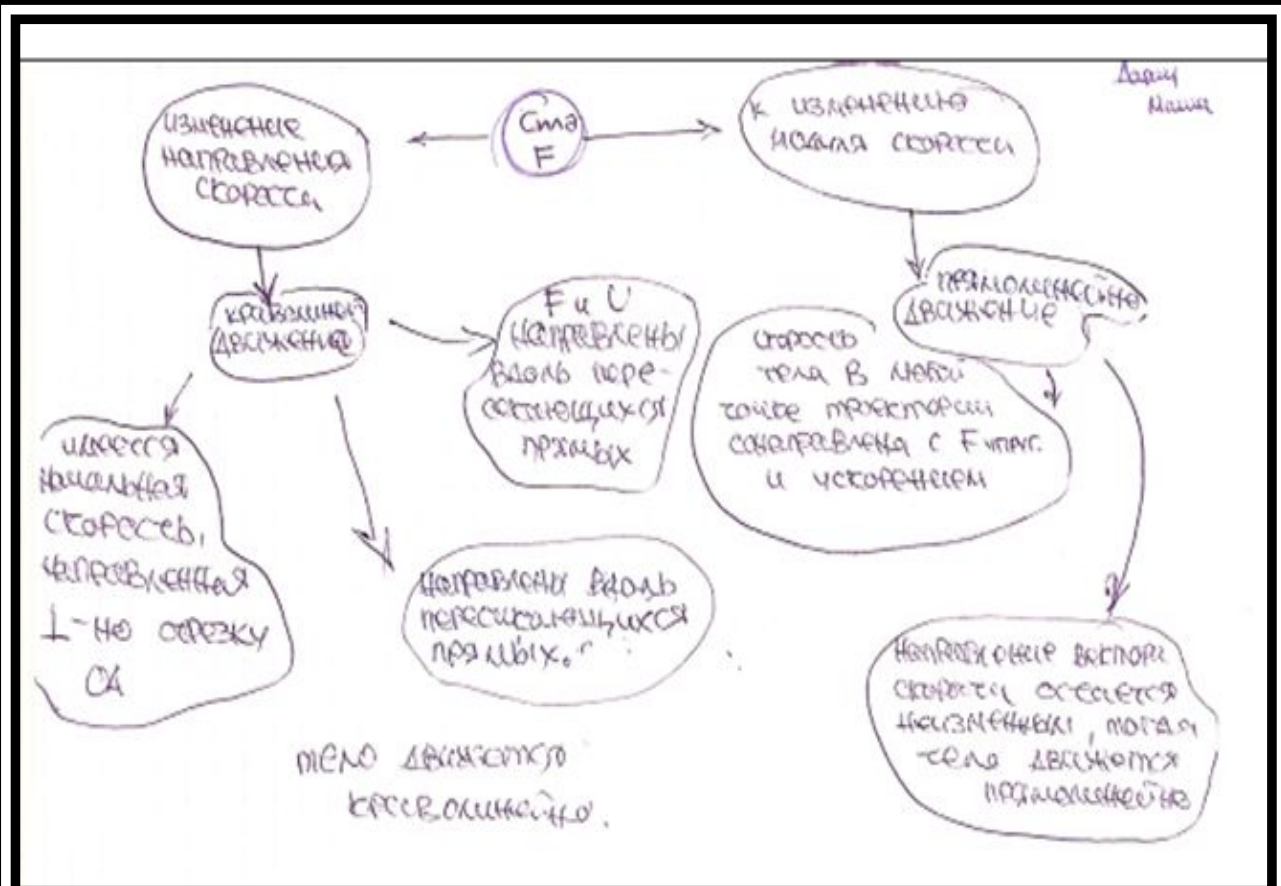 Маша
изменение
направления
скорости
Сила
F
к изменению
модуля скорости
криволиней
движение
F и U
направлены
вдоль пере-
секающихся
прямых
прямолинейно
движение
скорость
тела в любой
точке траектории
сонаправлена с F
и ускорением
имеется
начальная
скорость,
направленная
⊥-но отрезку
ОА
направлены вдоль
пересикающихся
прямых.
направление вектора
скорости остается
неизменным,
тело движется
прямолинейно
тело движется
криволинейно.